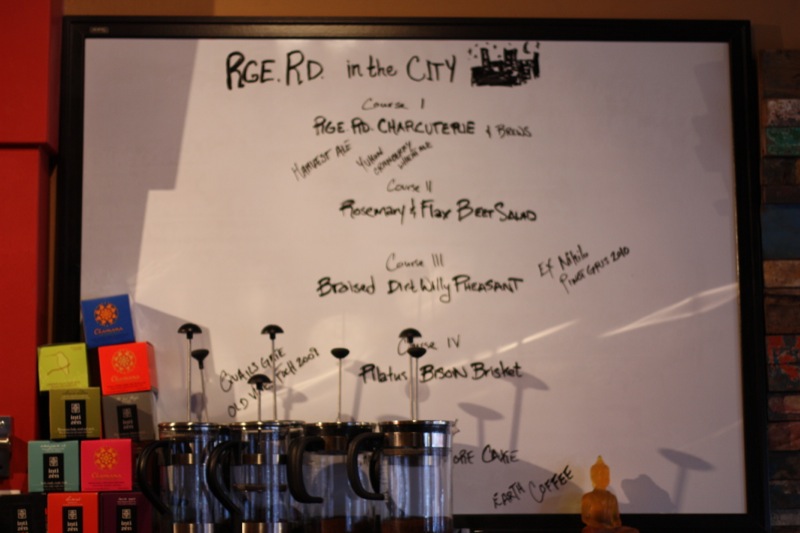 RGE. RD. in the CITY
Course I
RGE. RD. CHARCUTERIE & BREWS
HARVEST ALE
YUKON
CRANBERRY
Course II
Rosemary & Flax BEET SALAD
Course III
Braised Dirt Willy PHEASANT
Ex Nihilo
PINOT GRIS 2010
Course IV
Pilatus BISON Brisket
QUAILS GATE
OLD VINE FOCH 2009
CAKE
EARTH COFFEE